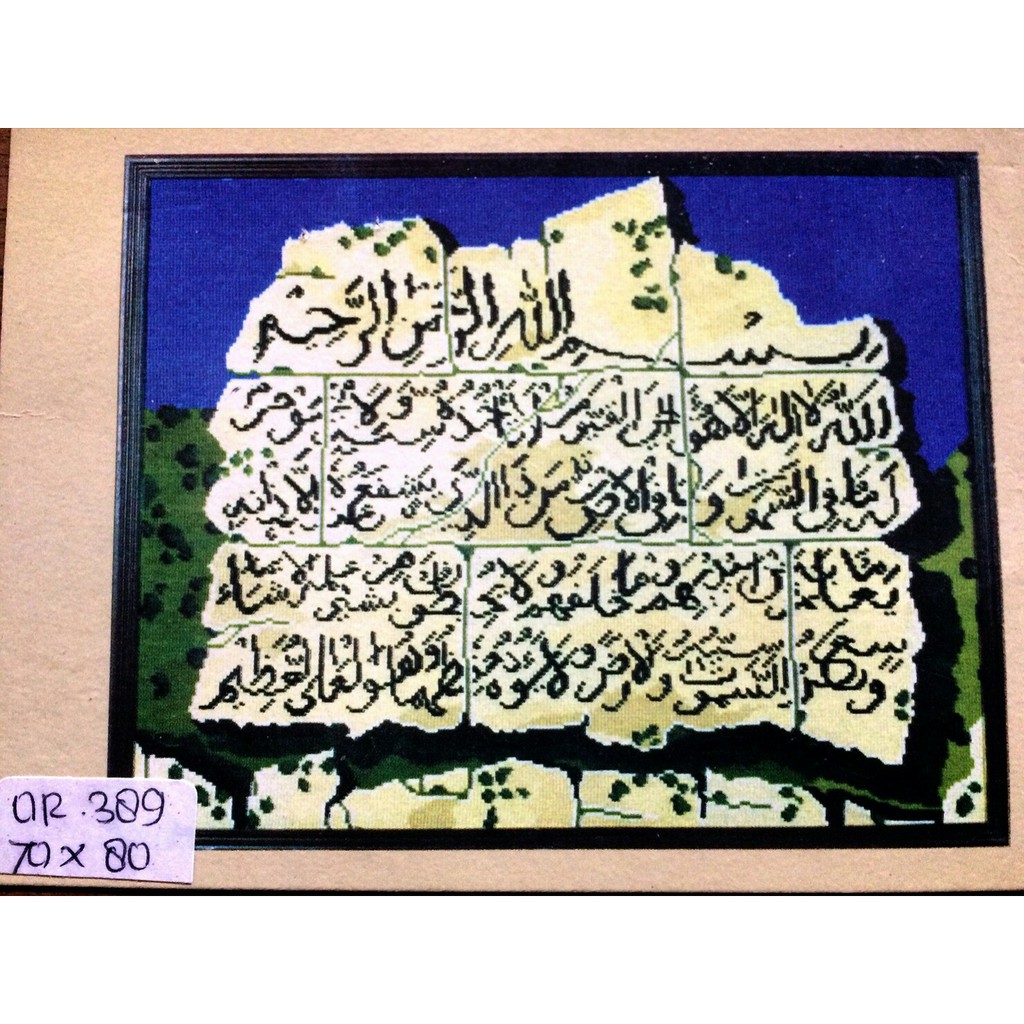 بِسْمِ اللهِ الرَّحْمٰنِ الرَّحِيْمِ
اللهُ لَا اِلٰهَ اِلَّا هُوَ الْحَيُّ الْقَيُّوْمُ لَا تَأْخُذُهُ سِنَةٌ وَلَا نَوْمٌ
لَهُ مَا فِى السَّمٰوَاتِ وَمَا فِى الْاَرْضِ مَنْ ذَا الَّذِى يَشْفَعُ عِنْدَهُ اِلَّا بِاِذْنِهِ
يَعْلَمُ مَا بَيْنَ اَيْدِيْهِمْ وَمَا خَلْفَهُمْ وَلَا يُحِيْطُوْنَ بِشَيْءٍ مِنْ عِلْمِهِ اِلَّا بِمَا شَاءَ
وَسِعَ كُرْسِيُّهُ السَّمٰوَاتِ وَالْاَرْضَ وَلَا يَؤُدُهُ حِفْظُهُمَا وَهُوَ الْعَلِىُّ الْعَظِيْمُ
OR . 389
70 x 80